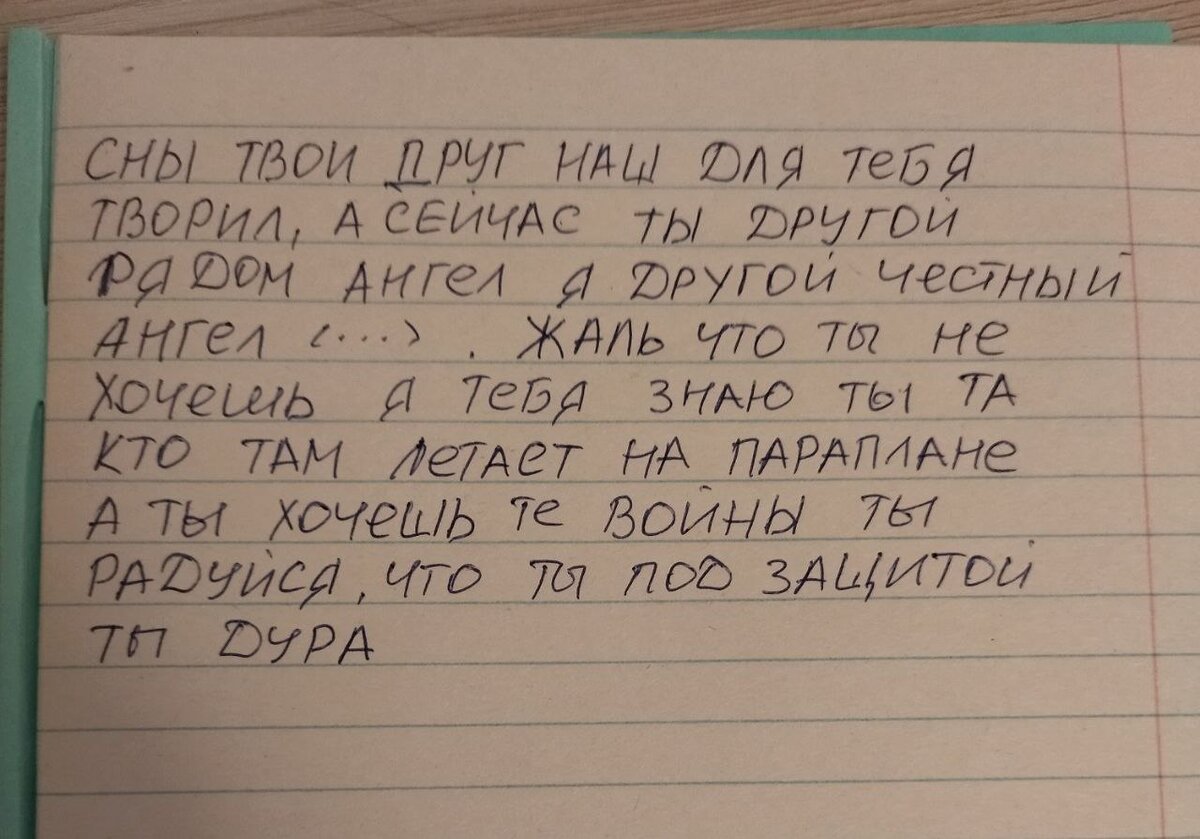 СНЫ ТВОИ ДРУГ НАШ ДЛЯ ТЕБЯ
ТВОРИЛ, А СЕЙЧАС ТЫ ДРУГОЙ
РЯДОМ АНГЕЛ Я ДРУГОЙ ЧЕСТНЫЙ
АНГЕЛ <...>. ЖАЛЬ ЧТО ТЫ НЕ
ХОЧЕШЬ Я ТЕБЯ ЗНАЮ ТЫ ТА
КТО ТАМ ЛЕТАЕТ НА ПАРАПЛАНЕ
А ТЫ ХОЧЕШЬ ТЕ ВОЙНЫ ТЫ
РАДУЙСЯ, ЧТО ТЫ ПОД ЗАЩИТОЙ
ТЫ ДУРА